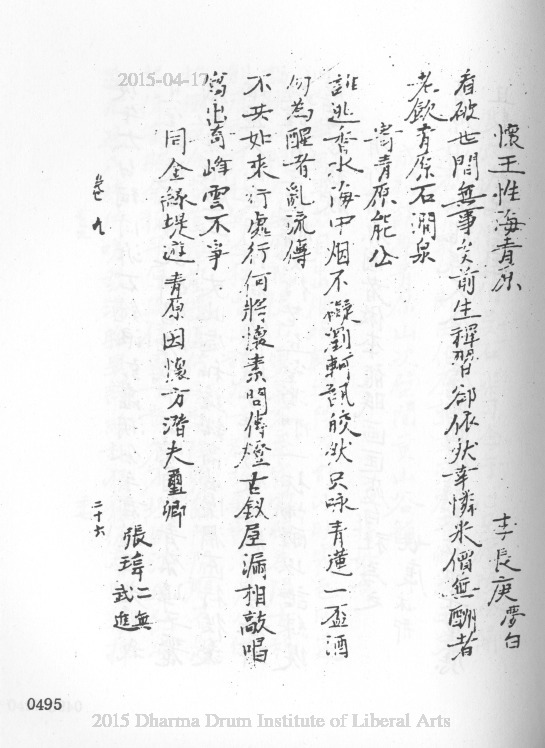 2015-04-17
懷王性海青原
李長庚夢白
看破世間無事矣前生禪習卻依然幸憐米價無酬者
老飲青原石澗泉
寄青原能公
誰逃香水海中烟不礙劉軻甑皎然只咏青蓮一盃酒
何為醒者亂流傳
不共如來行處行何將懷素問傳燈古釵屋漏相敲唱
寫出奇峰雲不爭
同全緣堤遊青原因懷方潛夫璽卿
張瑋二無
武進
卷九
二十六
0495
2015 Dharma Drum Institute of Liberal Arts